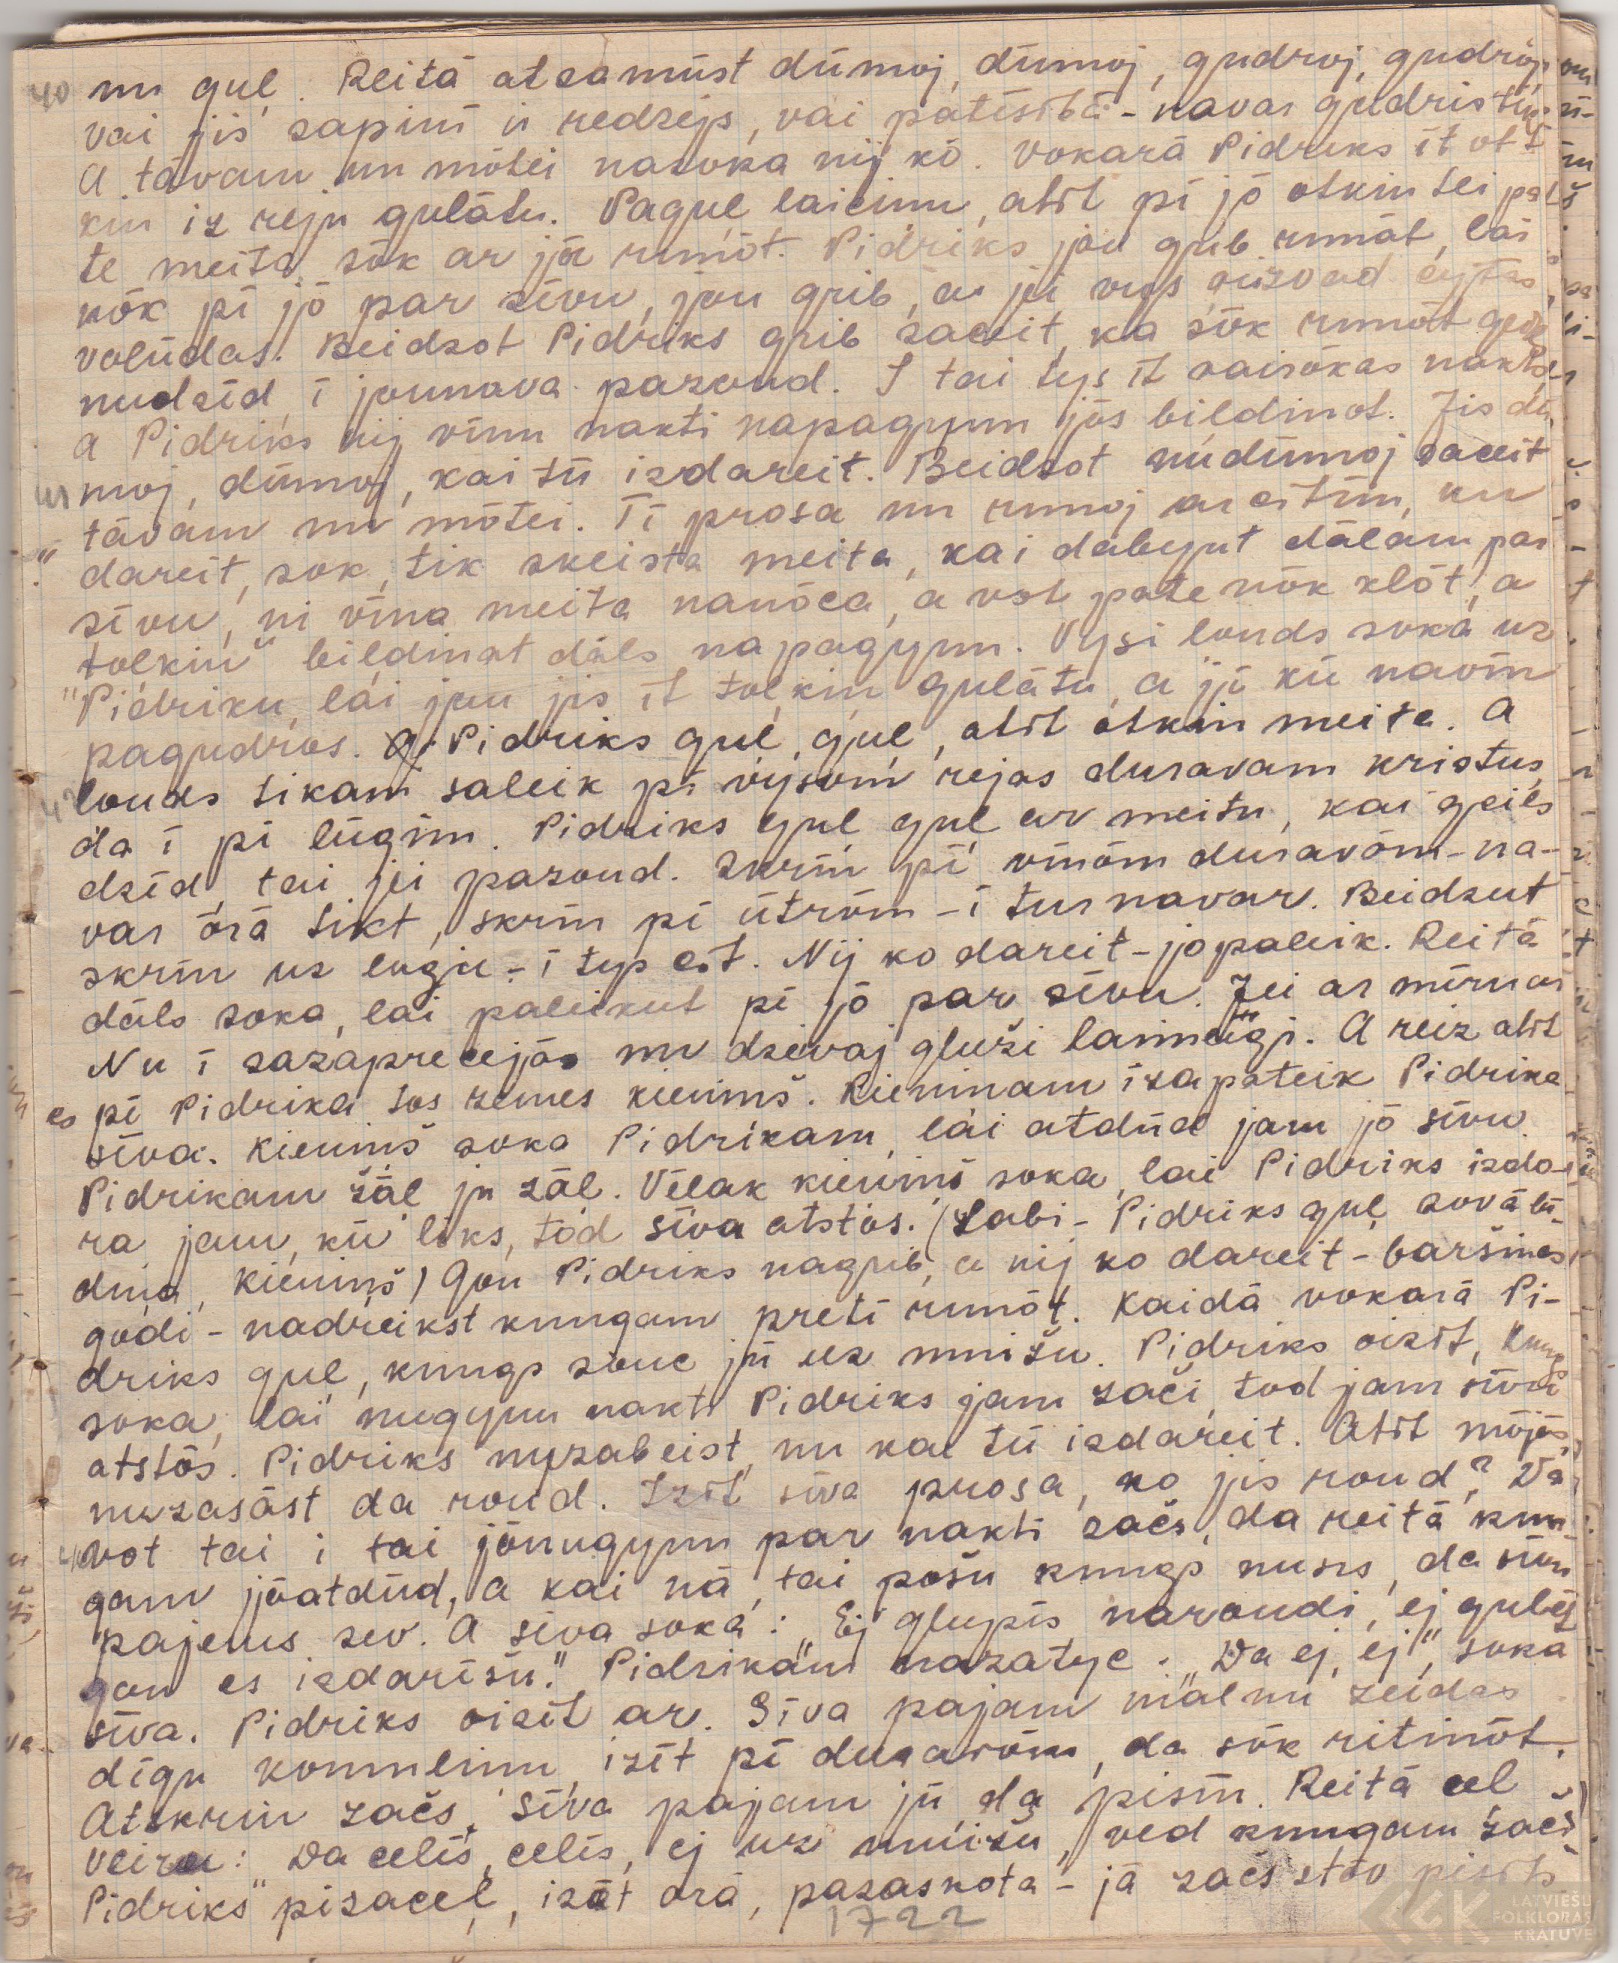 40 nu guļ. Reitā atsamūst dūmoj, dūmoj, gudroj, gudroj,
vai jis sapinī ir redzējs, vai patīsībā - navar gudris tikt
A tāvam un mōtei nasoka nij kō. Vokarā Pidriks īt ot
kin iz reju gulātu. Paguļ laiciņu, atīt pī jō otkin tei pa
te meita, sōk ar jū runōt. Pidriks jau grib runāt, lai
nōk pī jō par sīvu, jau grib, a jei vys aizvad cytas
volūdas. Beidzot Pidriks grib saceit, ka sōk runōt
nudzīd, i jaunava pazoud. I tai tys īt vairōkas nakts
a Pidriks nij vīnu nakti napagyun jōs bildinot. Jis dū
41 moj, dūmoj, kai tū izdareit. Beidzot nudūmoj saceit
tāvam un mōtei. Tī prosa un runoj ar citim, ku
dareit, sok, tik skeista meita, kai dabeyut dālam par
sīvu, ni vīna meita nanōca, a vot pate nōk klōt, a
tolkin" bildinat dāls napagyun. Vysi ļouds soka uz
"Pidriku, lai jau jis īt tolkin gulātu, a jī kū naviņ
pagudros. Pidriks guļ, guļ, atīt otkin meita. A
42 ļouds tikam saleik pī vysom rejas duravam kristus
da i pi lūgim. Pidriks guļ guļ ar meitu, kai gails
dzīd, tai jei pazoud. Skrīn pī vīnōm duravōm - na-
var ōrā tikt, skrīn pī ūtrōm - i tur navar. Beidzut
skrīn uz lugu - i typ est. Nij ko dareit - jōpaleik. Reitā
dāls soka, lai paleikut pī jō par sīvu. Jei ar mīru ar
Nu i sazaprecejās un dzeivoj gluži laimeigi. A reiz atīt
es pī Pidrika tos zemes kieniņš. Kieniņam izapateik Pidrika
sīva. Kieniņš soka Pidrikam, lai atdūd jam jō sīvu.
Pidrikam žāl ju žāl. Vēlak kieniņš soka, lai Pidriks izda-
ra jam, kū liks, tod sīva atstōs. (Labi - Pidriks guļ sovā bū-
diņā, kieniņš) Gon Pidriks nagrib, a nij ko dareit - baršinas
godi - nadreikst kungam pretī runōt. Kaidā vokarā Pi-
driks guļ, kungs souc jū uz muižu. Pidriks aizīt, kungs
soka, lai nugyun nakti Pidriks jam zači, tod jam sīvu
atstōs. Pidriks nuzabeist, nu kai tū izdareit. Atīt mōjōs,
nuzasāst da roud. Izīt sīva prosa, ko jis roud? Da
vot tai i tai jōnugyun par nakti začs, da reitā kun-
gam jōatdūd, a kai nā, tai pošu kungs nusis, da sīvu
pajems sev. A sīva soka: "Ej glupīs naroudi, ej gulēt
gon es izdarīšu." Pidrikam nazatyc. "Da ej, ej", soka
sīva. Pidriks aizīt ar. Sīva pajam malnu zeidas
dīgu kommlinu, izīt pī duravōm, da sōk ritinōt.
Atskrīn začs, sīva pajam jū da pisīn. Reitā cel
veiru: "Da celīs, celīs, ej uz muižu, ved kungam začs"
Pidriks pīzaceļ, izīt ōrā, pazaskota - jā začs stōv pisīts
1722
LATVIEŠU
FOLKLORAS
KRĀTUVE